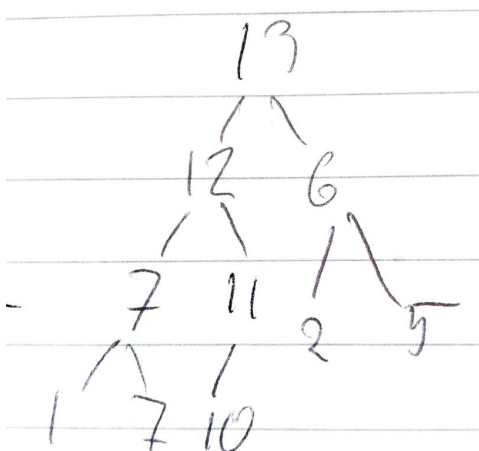 13
12 6
7 11 2 5
1 7 10